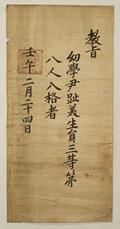 教旨
幼學尹趾義生員三等第
八人入格者
壬午二月二十四日